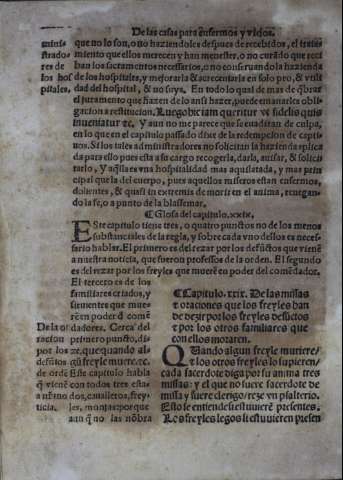 De las casas para enfermos y viejos.
minis
trado
res de
los hos
pitales.
que no lo son, o no haziendoles despues de recebidos, el trata
miento que ellos merecen y han menester, o no curado que recibā
los sacramentos necessarios, o no conseruando la hazienda
de los hospitales, y mejorarla & acrecentarla en solo pro, & vtili
dad del hospital, & no suyo. En todo lo qual de mas de q̄brar
el juramento que hazen de lo ansi hazer, puede emanarles obli
gacion a restitucion. Luego hic iam queritur vt fidelis quis
inueniatur &c. Y aun no me parece que se euadiran de culpa,
en lo que en el capitulo passado dixe de la redempcion de capti-
uos. Si los tales administradores no solicitan la hazienda aplica
da para ello pues esta a su cargo recogerla, darla, auisar, & solici
tarlo, y aq̄lla es vna hospitalidad mas aquilatada, y mas prin
cipal que la del cuerpo, pues aquellos miseros estan enfermos,
dolientes, & quasi in extremis de morir en el anima, renegan-
do la fe, o a punto de la blasfemar.
¶ Glosa del capitulo .xxix.
Este capitulo tiene tres, o quatro punctos no de los menos
substanciales de la regla, y sobre cada vno dellos es necessa-
rio hablar. El primero es del rezar por los defūctos que vienē
a nuestra noticia, que fueron professos de la orden. El segundo
es del rezar por los freyles que muerē en poder del comēdador.
El tercero es de los
familiares criados, y
siruientes que mue-
rē en poder d̄ comē
dadores. Cerca del
primero punto,
es, que quando al
gū freyle muere &c.
Este capitulo habla
con todos tres esta-
dos, caualleros, frey-
les, monjas: porque
aun q̄ no las nōbra
De la o
racion
por los
defūctos
de ordē
q̄ vienē
a nr̄a no
ticia.
¶ Capitulo .xxix. De las missas
& oraciones que los freyles han
de dezir por los freyles defūctos
& por los otros familiares que
con ellos moraren.
Quando algun freyle muriere/
& los otros freyles lo supieren/
cada sacerdote diga por su anima tres
missas: y el que no fuere sacerdote de
missa y fuere clerigo/ reze vn psalterio.
Esto se entiende si estuuierē presentes.
Los freyles legos si estuuieren presen